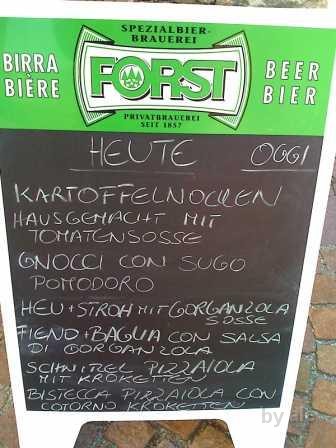 SPEZIALBIER-
BRAUEREI
BIRRA
BIÈRE
FORST
BEER
BIER
PRIVATBRAUEREI
SEIT 1857
HEUTE OGGI
KARTOFFELNOCKEN
HAUSGEMACHT MIT
TOMATENSOSSE
GNOCCI CON SUGO
POMODORO
HEU+STROH MIT GORGANZOLA
SOSSE
FIENO+BAGLIA CON SALSA
DI GORGANZOLA
SCHNITZEL PIZZAIOLA
MIT KROKETTEN
BISTECCA PIZZAIOLA CON
COTORNO KROKETTEN